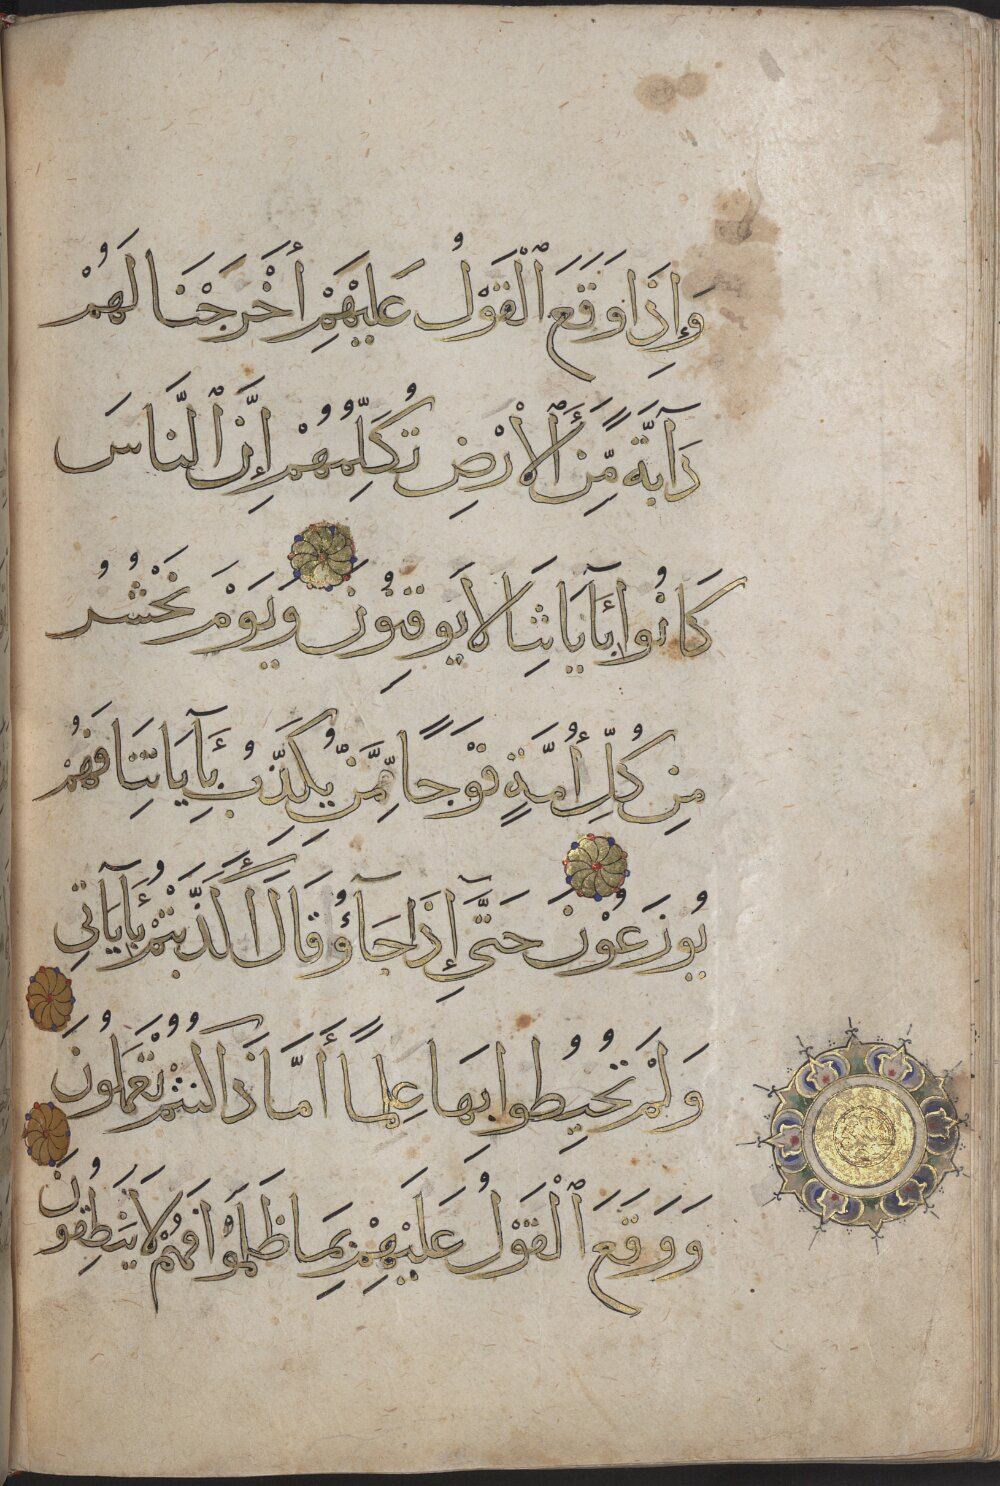 وَإِذَا وَقَعَ ٱلْقَوْلُ عَلَيْهِمْ أَخْرَجْنَا لَهُمْ
دَآبَّةً مِّنَ ٱلْأَرْضِ تُكَلِّمُهُمْ إِنَّ ٱلنَّاسَ
كَانُوا بِـَٔايَاتِنَا لَا يُوقِنُونَ وَيَوْمَ نَحْشُرُ
مِن كُلِّ أُمَّةٍ فَوْجًا مِّمَّن يُكَذِّبُ بِـَٔايَاتِنَا فَهُمْ
يُوزَعُونَ حَتَّىٰٓ إِذَا جَآءُو قَالَ أَكَذَّبْتُم بِـَٔايَاتِي
وَلَمْ تُحِيطُوا بِهَا عِلْمًا أَمَّا ذَا كُنتُمْ تَعْمَلُونَ
وَوَقَعَ ٱلْقَوْلُ عَلَيْهِم بِمَا ظَلَمُوا فَهُمْ لَا يَنطِقُونَ